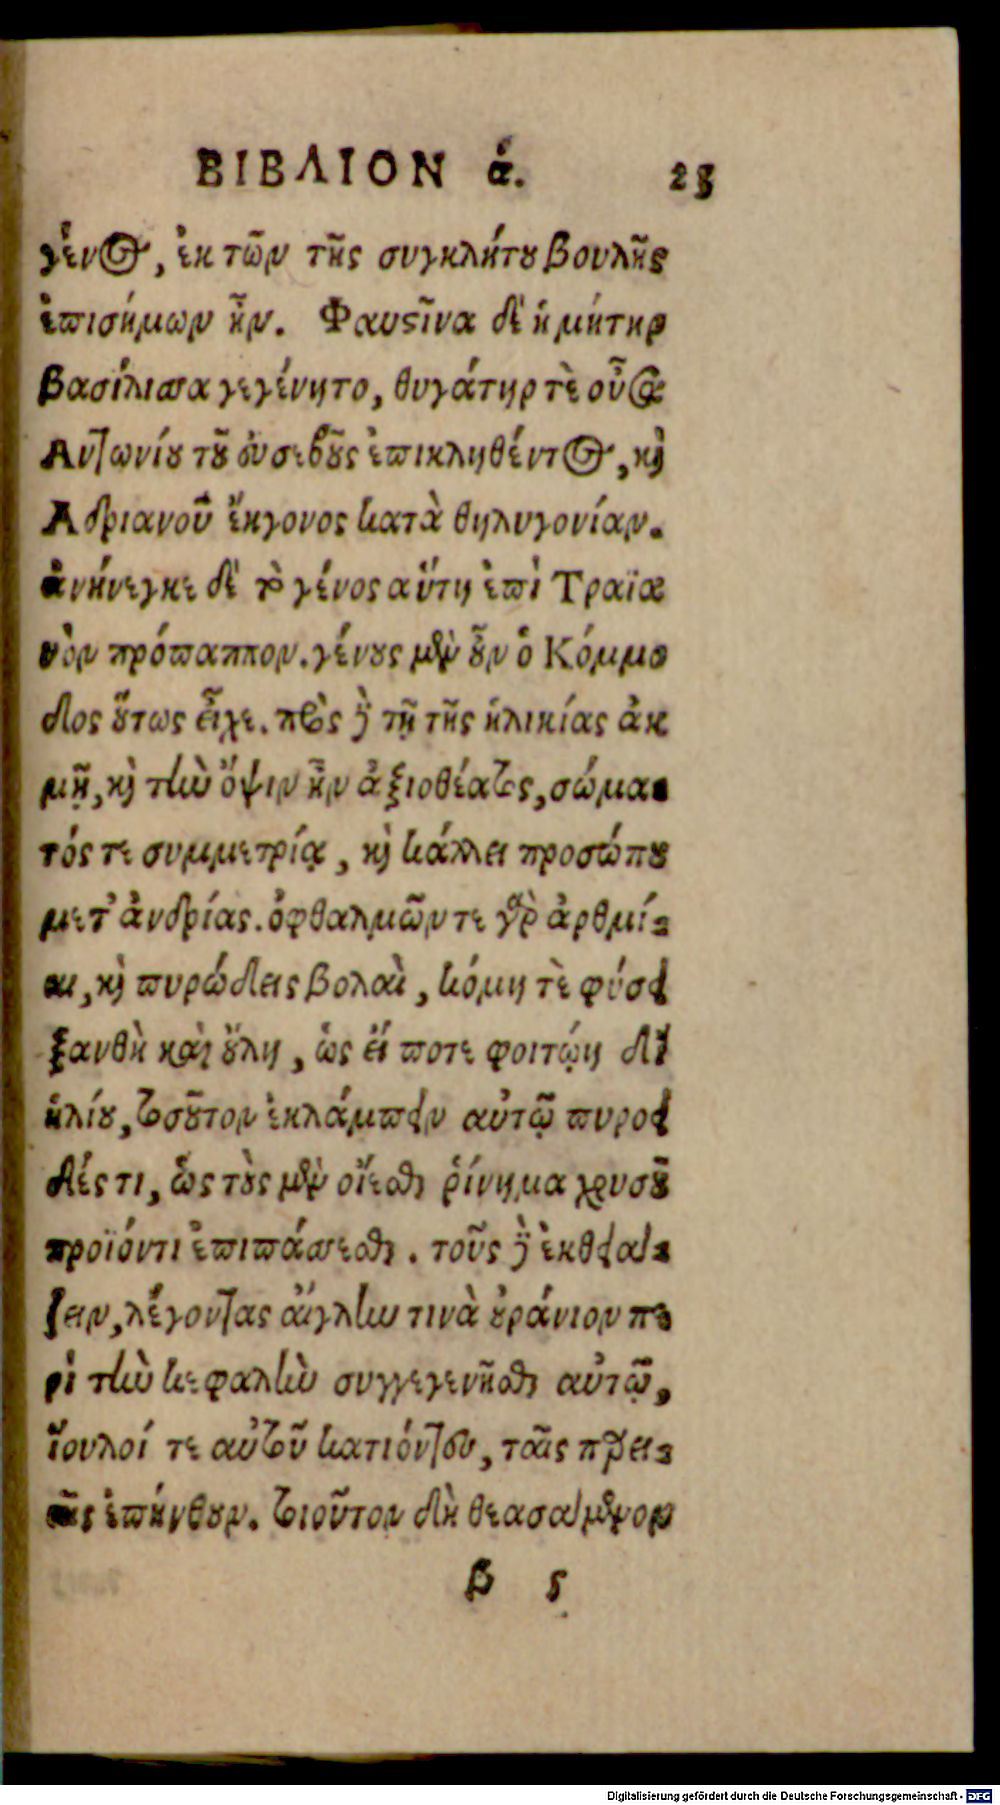 ΒΙΒΛΙΟΝ ά. 23
γένος, ἐκ τῶν τῆς συγκλήτου βουλῆς
ἐπισήμων ἦν. Φαυστῖνα δὲ ἡ μήτηρ
βασίλισσα γεγένητο, θυγάτηρ τὲ οὖσα
Αντωνίου τοῦ εὐσεβοῦς ἐπικληθέντος, καὶ
Αδριανοῦ ἔκγονος κατὰ θηλυγονίαν.
ἀνήνεγκε δὲ τὸ γένος αὕτη ἐπὶ Τραϊα
νὸν πρόπαππον. γένους μὲν οὖν ὁ Κόμμο
δος οὕτως εἶχε. πρὸς δὲ τῇ τῆς ἡλικίας ἀκ
μῇ, καὶ τὴν ὄψιν ἦν ἀξιοθέατος, σώμα-
τός τε συμμετρίᾳ, καὶ κάλλει προσώπου
μετ' ἀνδρίας. ὀφθαλμῶν τε γὰρ ἀρθμί-
αι, καὶ πυρώδεις βολαὶ, κόμη τὲ φύσει
ξανθὴ καὶ οὔλη, ὡς εἴ ποτε φοιτῴη δι'
ἡλίου, τοσοῦτον ἐκλάμπειν αὐτῷ πυροει
δές τι, ὡς τοὺς μὲν οἴεσθαι ῥίνημα χρυσοῦ
προϊόντι ἐπιπάσσεσθαι. τοὺς δὲ ἐκθεια-
ζειν, λέγοντας αἴγλην τινὰ οὐράνιον πε
ρὶ τὴν κεφαλὴν συγγεγενῆσθαι αὐτῷ,
ἴουλοί τε αὐτοῦ κατιόντες, ταῖς παρει-
αῖς ἐπήνθουν. τοιοῦτον δὴ θεασάμενοι
β 5